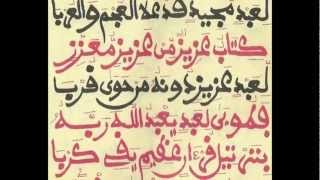 لعبد مجيد قد علا العجم والعربا
كتاب عزيز من عزيز معزز
لعبد عزيز دونه من حوى قربا
فطوبى لعبد يعبد الله ربه
بترتيل قرءان عظيم يقي كربا